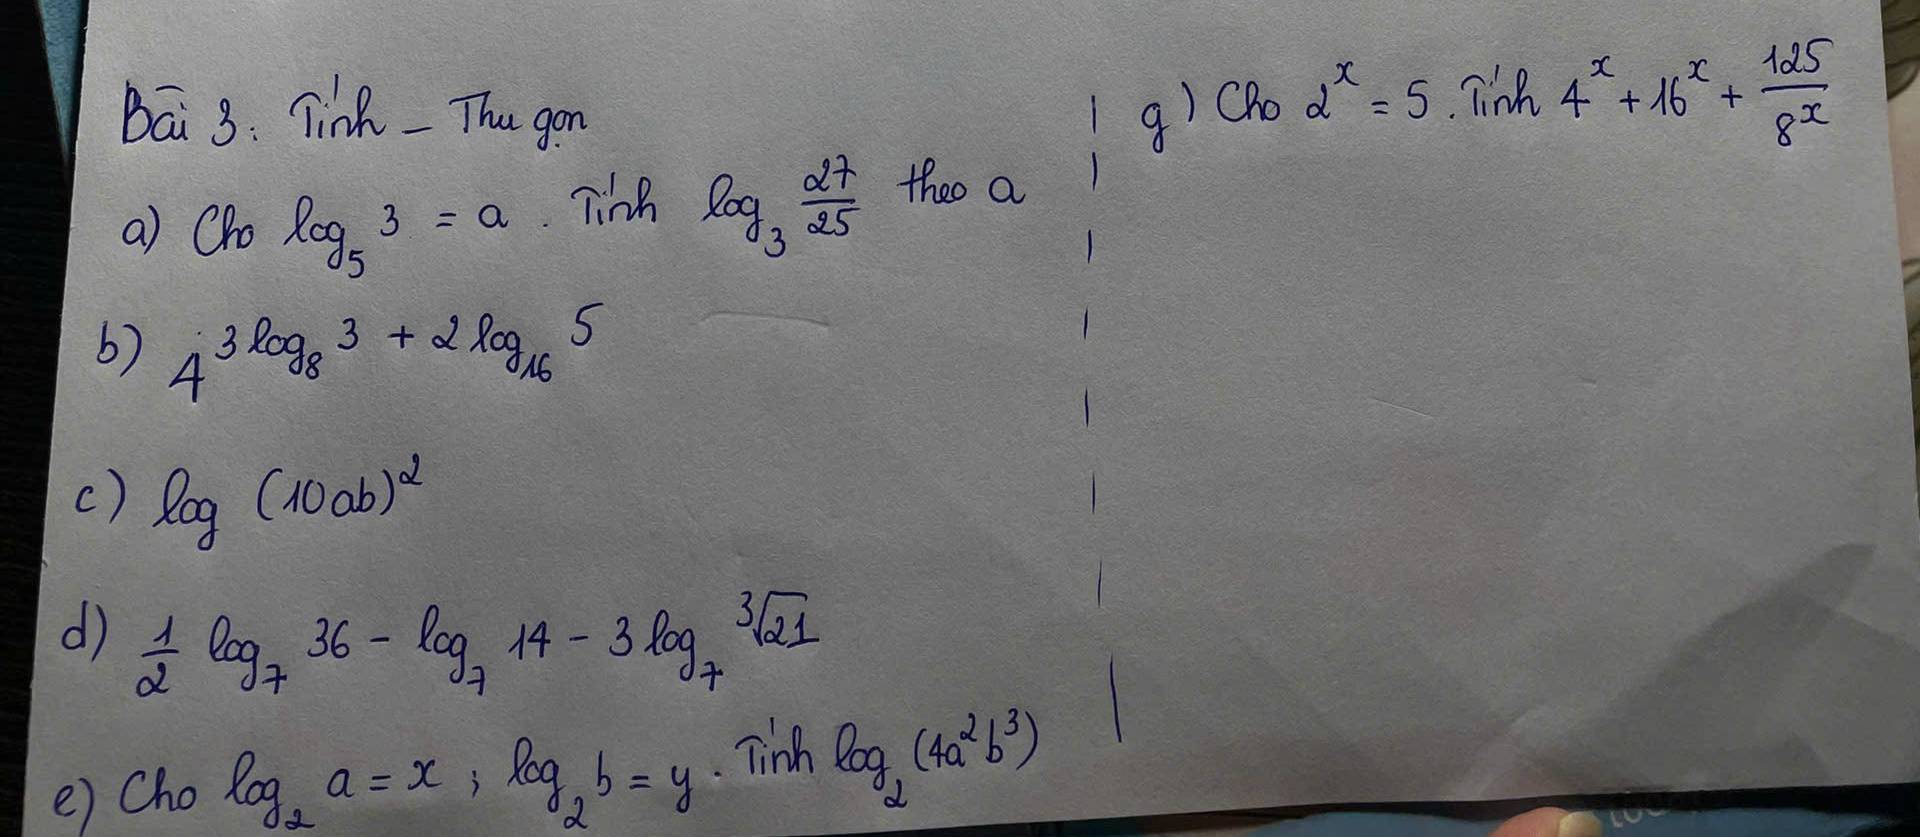 Bài 3: Tính - Thu gọn
a) Cho log₅ 3 = a. Tính log₃ 27/25 theo a
b) 4^(3log₈ 3 + 2log₁₆ 5)
c) log (10ab)²
d) 1/2 log₇ 36 - log₇ 14 - 3log₇ ³√21
e) Cho log₂ a = x ; log₂ b = y. Tính log₂ (4a²b³)
g) Cho 2ˣ = 5. Tính 4ˣ + 16ˣ + 125/8ˣ